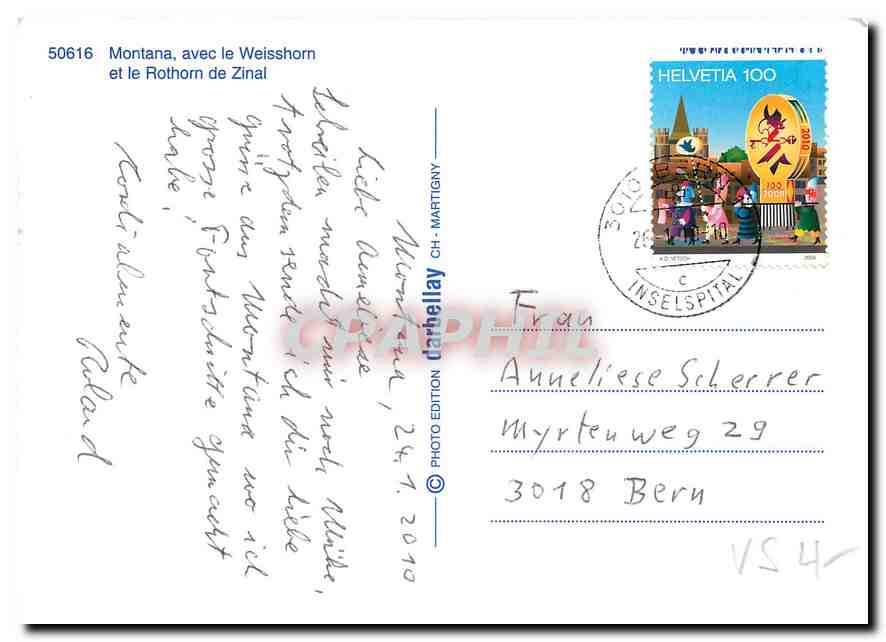 50616 Montana, avec le Weisshorn
et le Rothorn de Zinal
Montana, 24.1.2010
Liebe Anneliese
Schreiben macht mir noch Mühe,
trotzdem sende ich dir liebe
Grüsse aus Montana wo ich
grosse Fortschritte gemacht
habe!
Kordialmente
Ruland
© PHOTO EDITION darbellay CH - MARTIGNY
HELVETIA 100
2010
100
2009
3010
C
INSELSPITAL
Frau
Anneliese Scherrer
Myrtenweg 29
3018 Bern
VS 4-
CPAPHIL